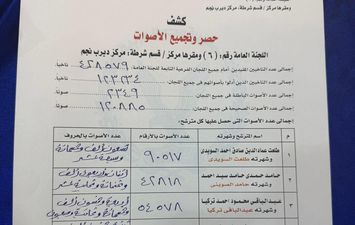 ومقرها مركز / قسم شرطة: مركز ديرب نجم
كشف
حصر وتجميع الأصوات
اللجنة العامة رقم: ( ٦ ) ومقرها مركز / قسم شرطة: مركز ديرب نجم
إجمالى عدد الناخبين المقيدين أمام جميع اللجان الفرعية التابعة للجنة العامة ٤٢٨٥٧٩ ناخباً.
إجمالى عدد الناخبين الذين أدلوا بأصواتهم فى جميع اللجان ١٢٣٢٣٤ ناخباً.
إجمالى عدد الأصوات الباطلة فى جميع اللجان ٢٣٤٩ صوتاً.
إجمالى عدد الأصوات الصحيحة فى جميع اللجان ١٢٠٨٨٥ صوتاً.
عدد الأصوات التى حصل عليها كل مترشح:
م اسم المترشح وشهرته عدد الأصوات بالأرقام عدد الأصوات بالحروف
١ طلعت عماد الدين صادق احمد السويدى وشهرته طلعت السويدى ٩٠٠١٧
٢ حامد حمدى حامد سيد احمد وشهرته حامد الصوينى ٤٢٨١٨
٣ عبدالباقى محمود احمد تركيا وشهرته عبدالباقى تركيا ٥٤٥٧٨